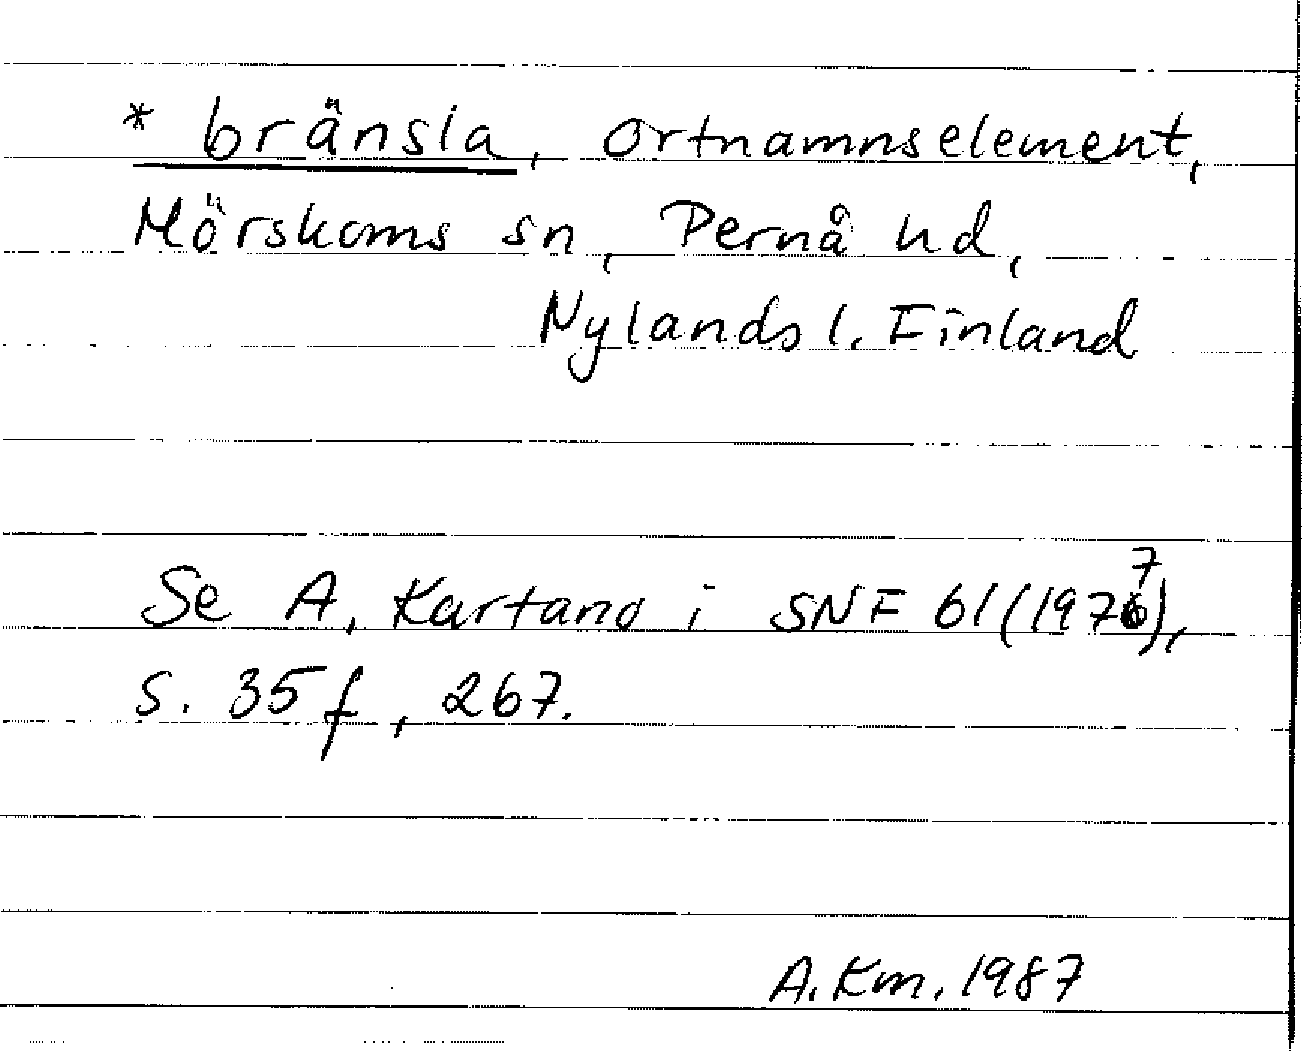 * bränsla, ortnamnselement,
Mörskoms sn, Pernå hd,
Nylands l. Finland
Se A. Kartano i SNF 61 (1977),
s. 35 f, 267.
A. Km. 1987